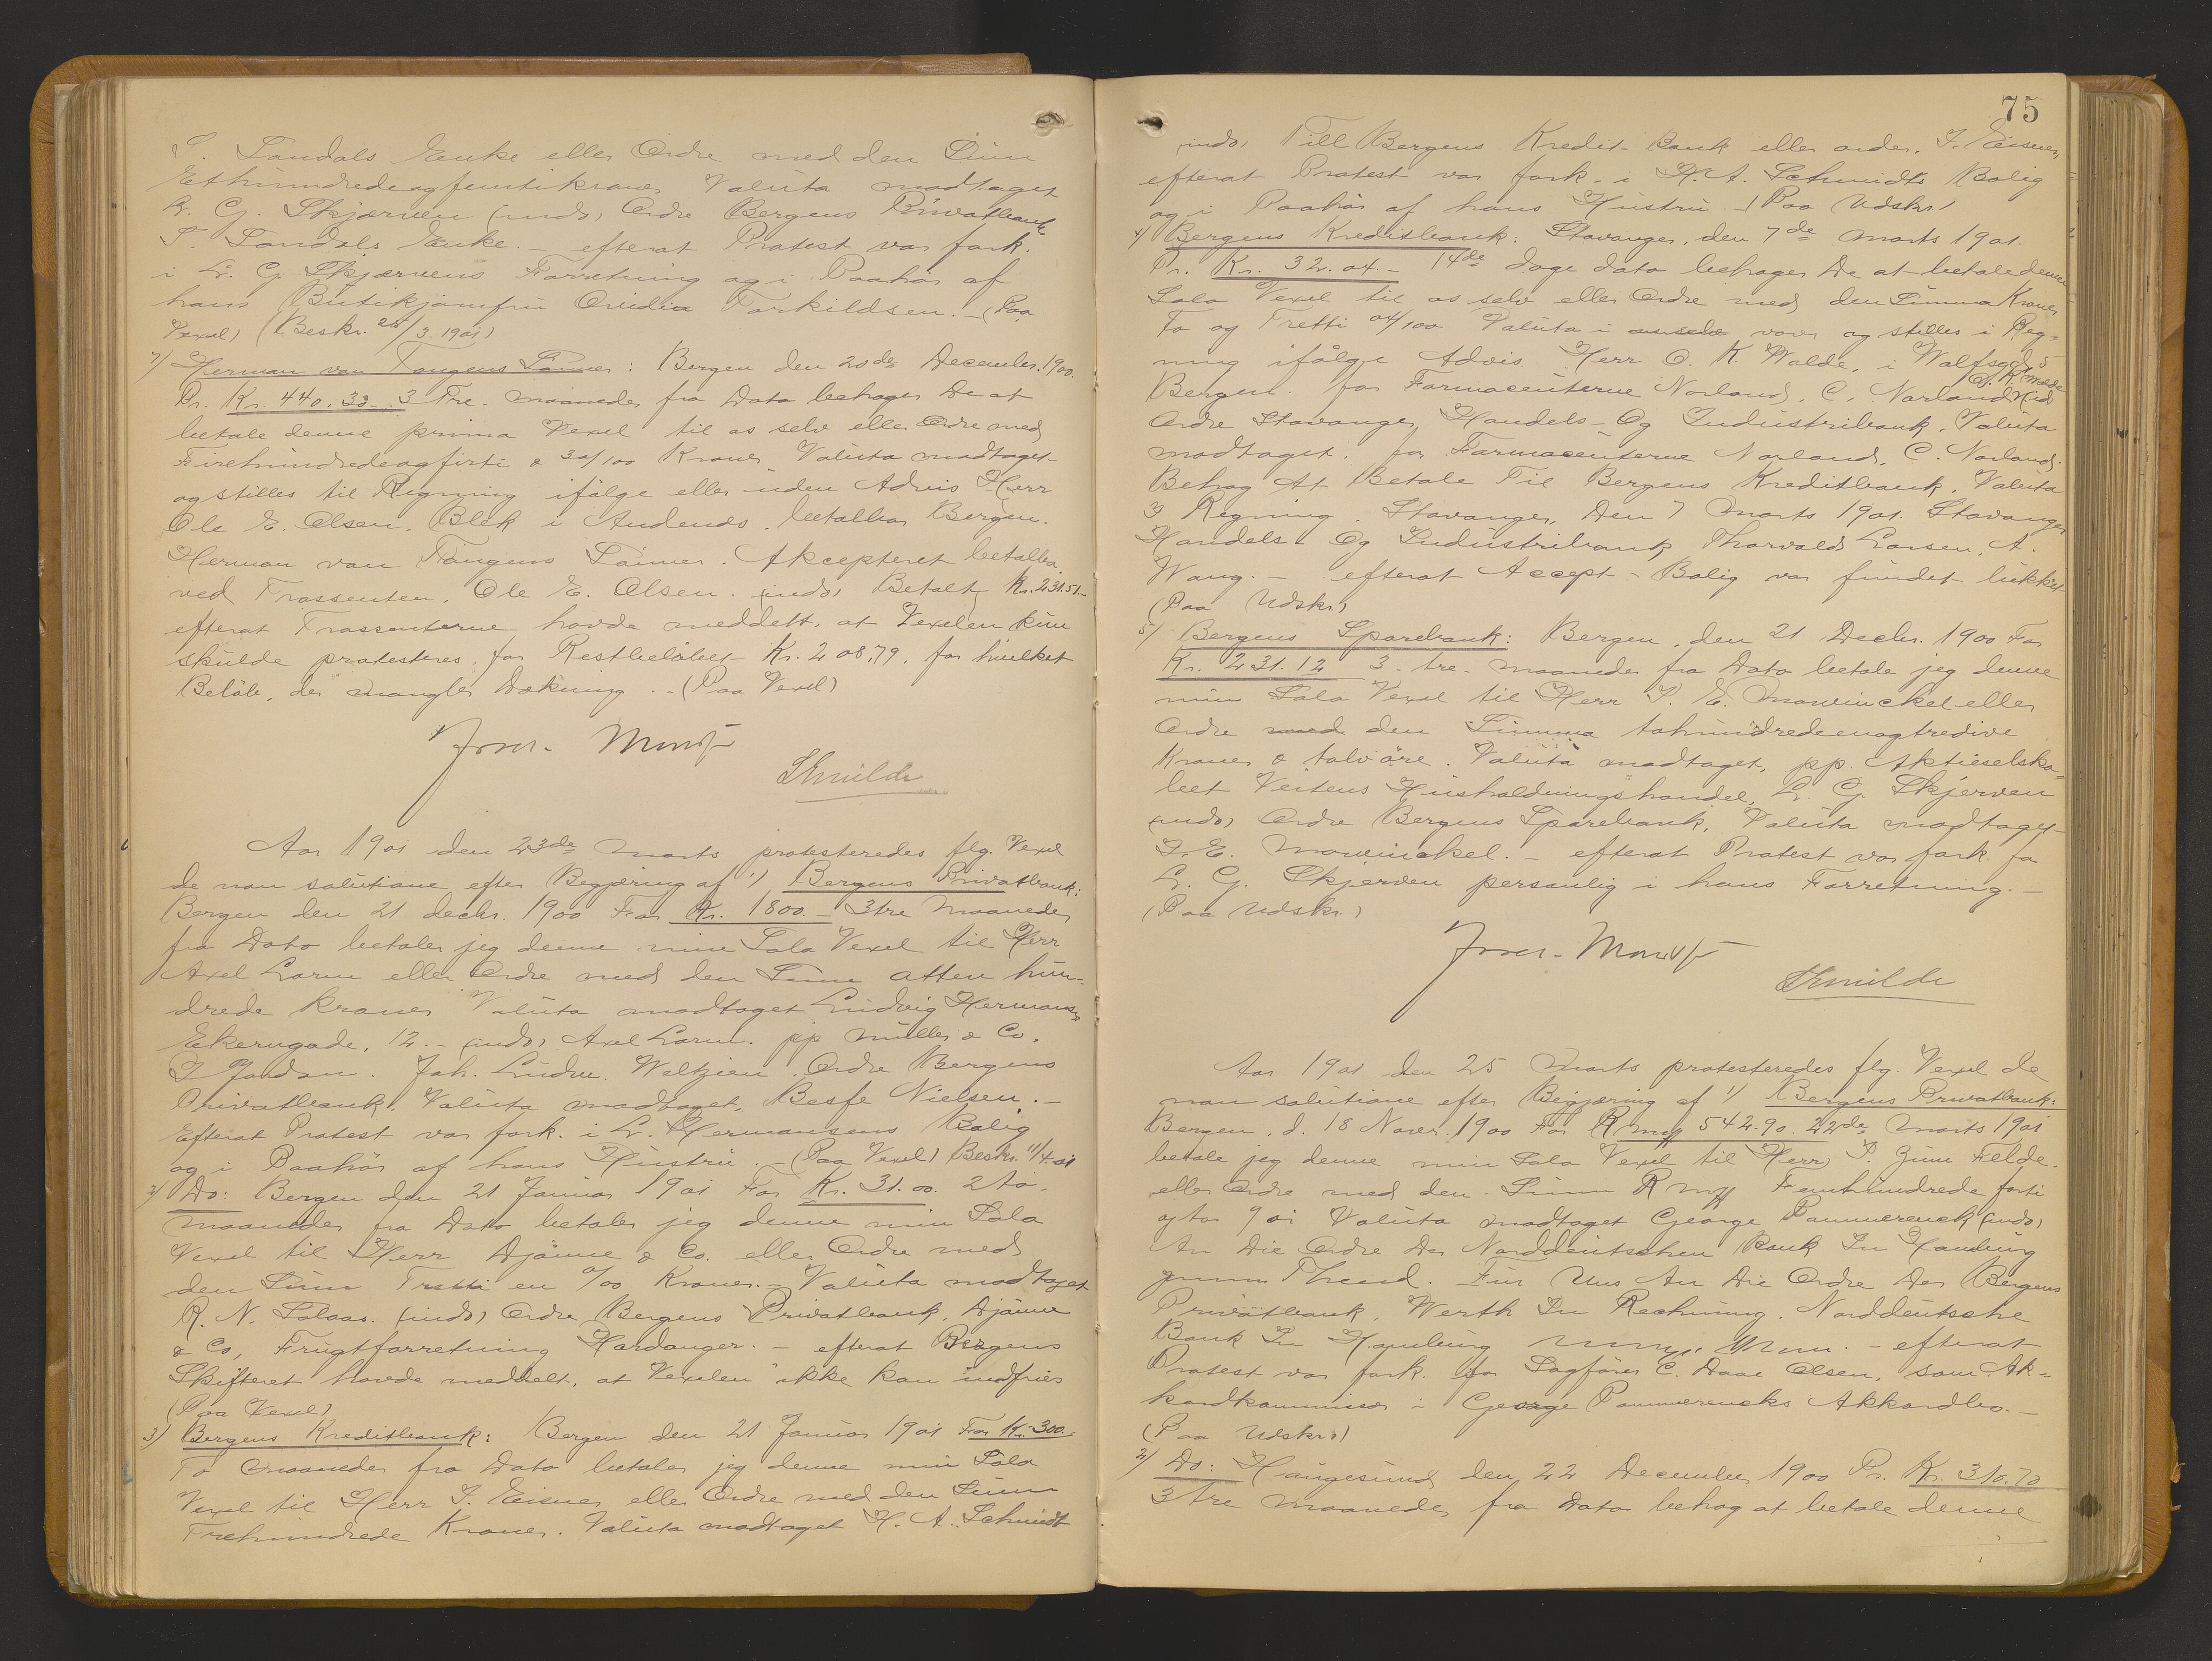 S. Sandals Enke eller Ordre med den Sum
Ethundredeogfemtikroner Valuta modtaget
L. G. Skjærven (indo) Ordre Bergens Privatbank
S. Sandals Enke. - efterat Protest var fork.
i L. G. Skjærvens Forretning og i Paahør af
hans Butikjomfru Ovidia Torkildsen. - (Paa
Vexel) (Beskr. 26/3. 1901)
7) Herman von Tangens Sønner: Bergen den 20de December 1900.
Pr. Kr. 440.30. 3 Tre maaneder fra Dato behager De at
betale denne prima Vexel til os selv eller Ordre med
Firehundredeogfirti & 30/100 Kroner Valuta modtaget
og stilles til Regning ifølge eller uden Advis Herr
Ole E. Olsen. Blek i Andenæs, betalbar Bergen.
Herman von Tangens Sønner. Akcepteret betalbar
ved Trassenten, Ole E. Olsen. (indo) Betalt Kr. 231.51-
efterat Trassenterne havde meddelt, at Vexelen kun
skulde protesteres for Restbeløbet Kr. 208,79, for hvilket
Beløb, der mangler Dækning. - (Paa Vexel)
Smilde
Aar 1901 den 23de Marts protesteredes flg. Vexel
de non solutione efter Begjæring af 1) Bergens Privatbank:
Bergen den 21 decbr. 1900 For Kr. 1800.- 3tre Maaneder
fra Dato betaler jeg denne min Sola Vexel til Herr
Axel Lorm eller Ordre med den Sum atten hun-
drede kroner Valuta modtaget Ludvig Hermansen
Ekerngade, 12. - (indo) Axel Lorm. pp Müller & Co.
I Jordan. Joh. Ludw. Weltzien. Ordre Bergens
Privatbank. Valuta modtaget, Besfe Nielsen. -
Efterat Protest var fork. i L. Hermansens Bolig
og i Paahør af hans Hustru. - (Paa Vexel) Beskr. 11/4.01
2) Do: Bergen den 21 Januar 1901 For Kr. 31.00. 2 to.
maaneder fra Dato betaler jeg denne min Sola
Vexel til Herr Djønne & Co. eller Ordre med
den Sum Tretti en 0/00 Kroner. - Valuta modtaget
R. N. Solaas. (indo) Ordre Bergens Privatbank, Djønne
& Co, Frugtforretning Hardanger. - efterat Bergens
Skifteret havde meddelt, at Vexelen ikke kan indfries
(Paa Vexel)
3) Bergens Kreditbank: Bergen den 21 Januar 1901 For Kr. 300.
To maaneder fra Dato betaler jeg denne min Sola
Vexel til Herr I. Eisner eller Ordre med den Sum
Trehundrede Kroner. Valuta modtaget H. A. Schmidt
75
(indo) Till Bergens Kredit-Bank eller order. I. Eisner,
efterat Protest var fork. i H. A. Schmidts Bolig
og i Paahør af hans Hustru. (Paa Udskr.)
4) Bergens Kreditbank: Stavanger, den 7de Marts 1901.
Pr. Kr. 32.04.- 14de dage dato behager De at betale denne
Sola Vexel til os selv eller Ordre med den Summa Kroner
To og Tretti 04/100 Valuta i varer og stilles i Reg-
ning ifølge Advis. Herr O. K Walde, i Walfsgd 5
Bergen. for Farmaceuterne Norland, C. Norland O. K. Walde (indo)
Ordre Stavanger Handels- Og Industribank, Valuta
modtaget. for Farmaceuterne Norland, C. Norland.
Behag At Betale Til Bergens Kreditbank, Valuta
3 Regning. Stavanger, Den 7 Marts 1901. Stavanger
Handels- Og Industribank, Thorvald Larsen, A.
Wang. - efterat Accept-Bolig var fundet lukket
(Paa Udskr.)
5) Bergens Sparebank: Bergen, den 21 Decbr. 1900 For
Kr. 231.12 3 - tre - maaneder fra Dato betale jeg denne
min Sola Vexel til Herr I. E. Mowinckel eller
Ordre med den Summa tohundredeenogtredive
Kroner & tolv øre. Valuta modtaget, pp. Aktieselska-
bet Veitens Husholdningshandel, L. G. Skjerven
(indo) Ordre Bergens Sparebank, Valuta modtaget
I. E. Mowinckel. - efterat Protest var fork. for
L. G. Skjerven personlig i hans Forretning. -
(Paa Udskr.)
Smilde
Aar 1901 den 25 Marts protesteredes flg. Vexel de
non solutione efter Begjæring af 1) Bergens Privatbank:
Bergen, d. 18 Novr. 1900 For R my 542.90. 22de Marts 1901
betale jeg denne min Sola Vexel til Herr P. Zum Felde.
eller Ordre med den Sum R my Femhundrede forti
og to 90i Valuta modtaget George Pommerenck (indo)
An Die Ordre Der Norddeutschen Bank In Hamburg
Für Uns An Die Ordre Der Bergens
Privatbank, Werth In Rechnung. Norddeutsche
Bank In Hamburg - efterat
Protest var fork. for Sagfører C. Daae Olsen, som Ak-
kordkommissær i George Pommerencks Akkordbo. -
(Paa Udskr.)
2) Do: Haugesund den 22 December 1900 Pr. Kr. 310.70
3 tre maaneder fra Dato behag at betale denne